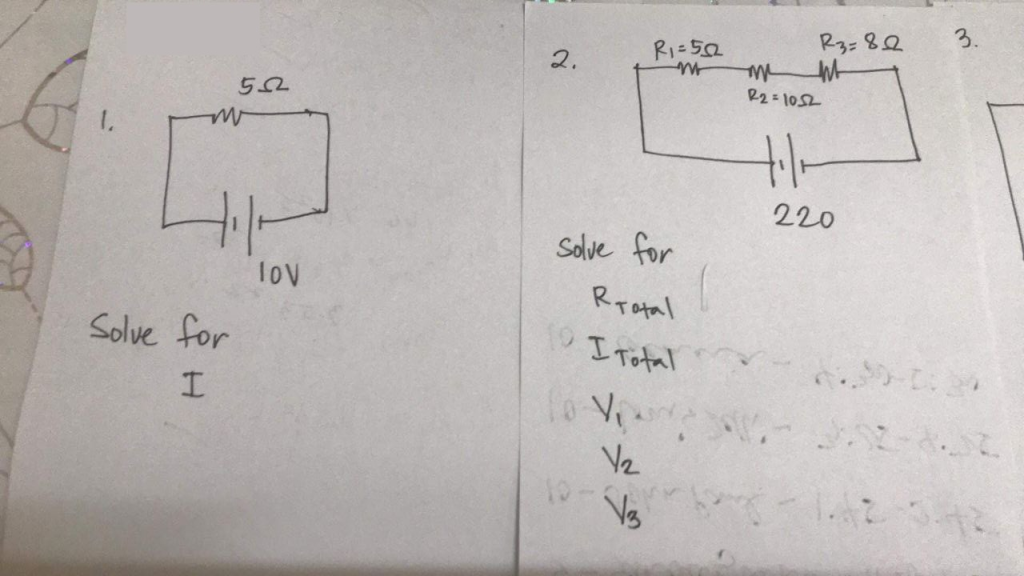 1.
5Ω
10V
Solve for
I
2.
R1=5Ω
R3=8Ω
R2=10Ω
220
Solve for
R Total
I Total
V1
V2
V3
3.